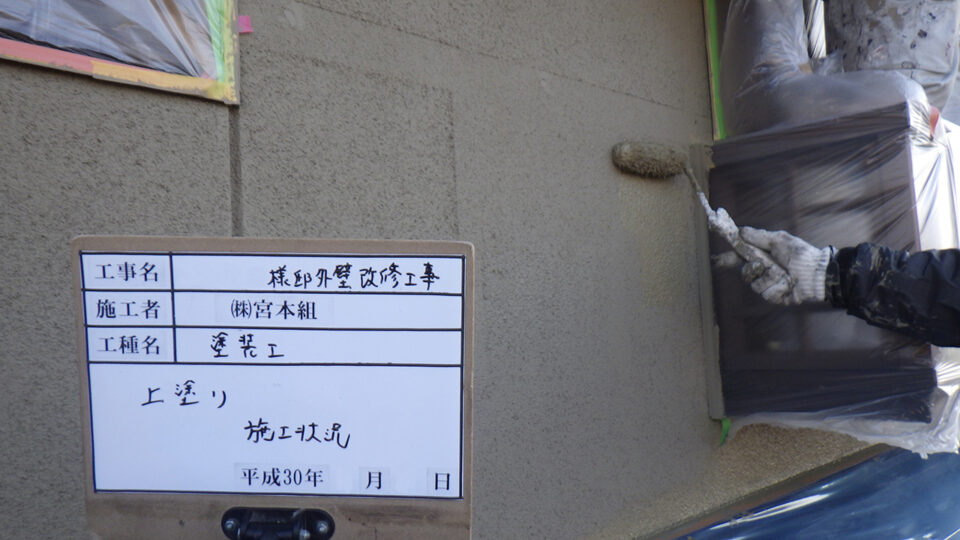 工事名 様邸外壁改修工事
施工者 ㈱宮本組
工種名 塗装工
上塗り
施工状況
平成30年 月 日